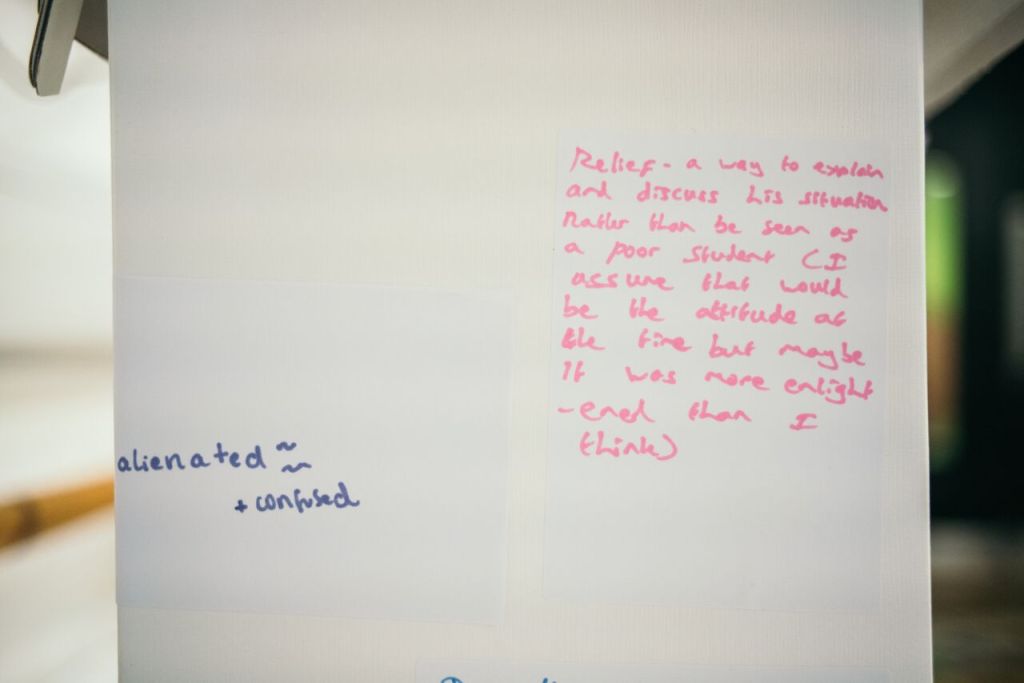 Relief - a way to explain
and discuss his situation
Rather than be seen as
a poor student (I
assume that would
be the attitude at
the time but maybe
It was more enlight
-ened than I
think)
alienated ~
~
+ confused